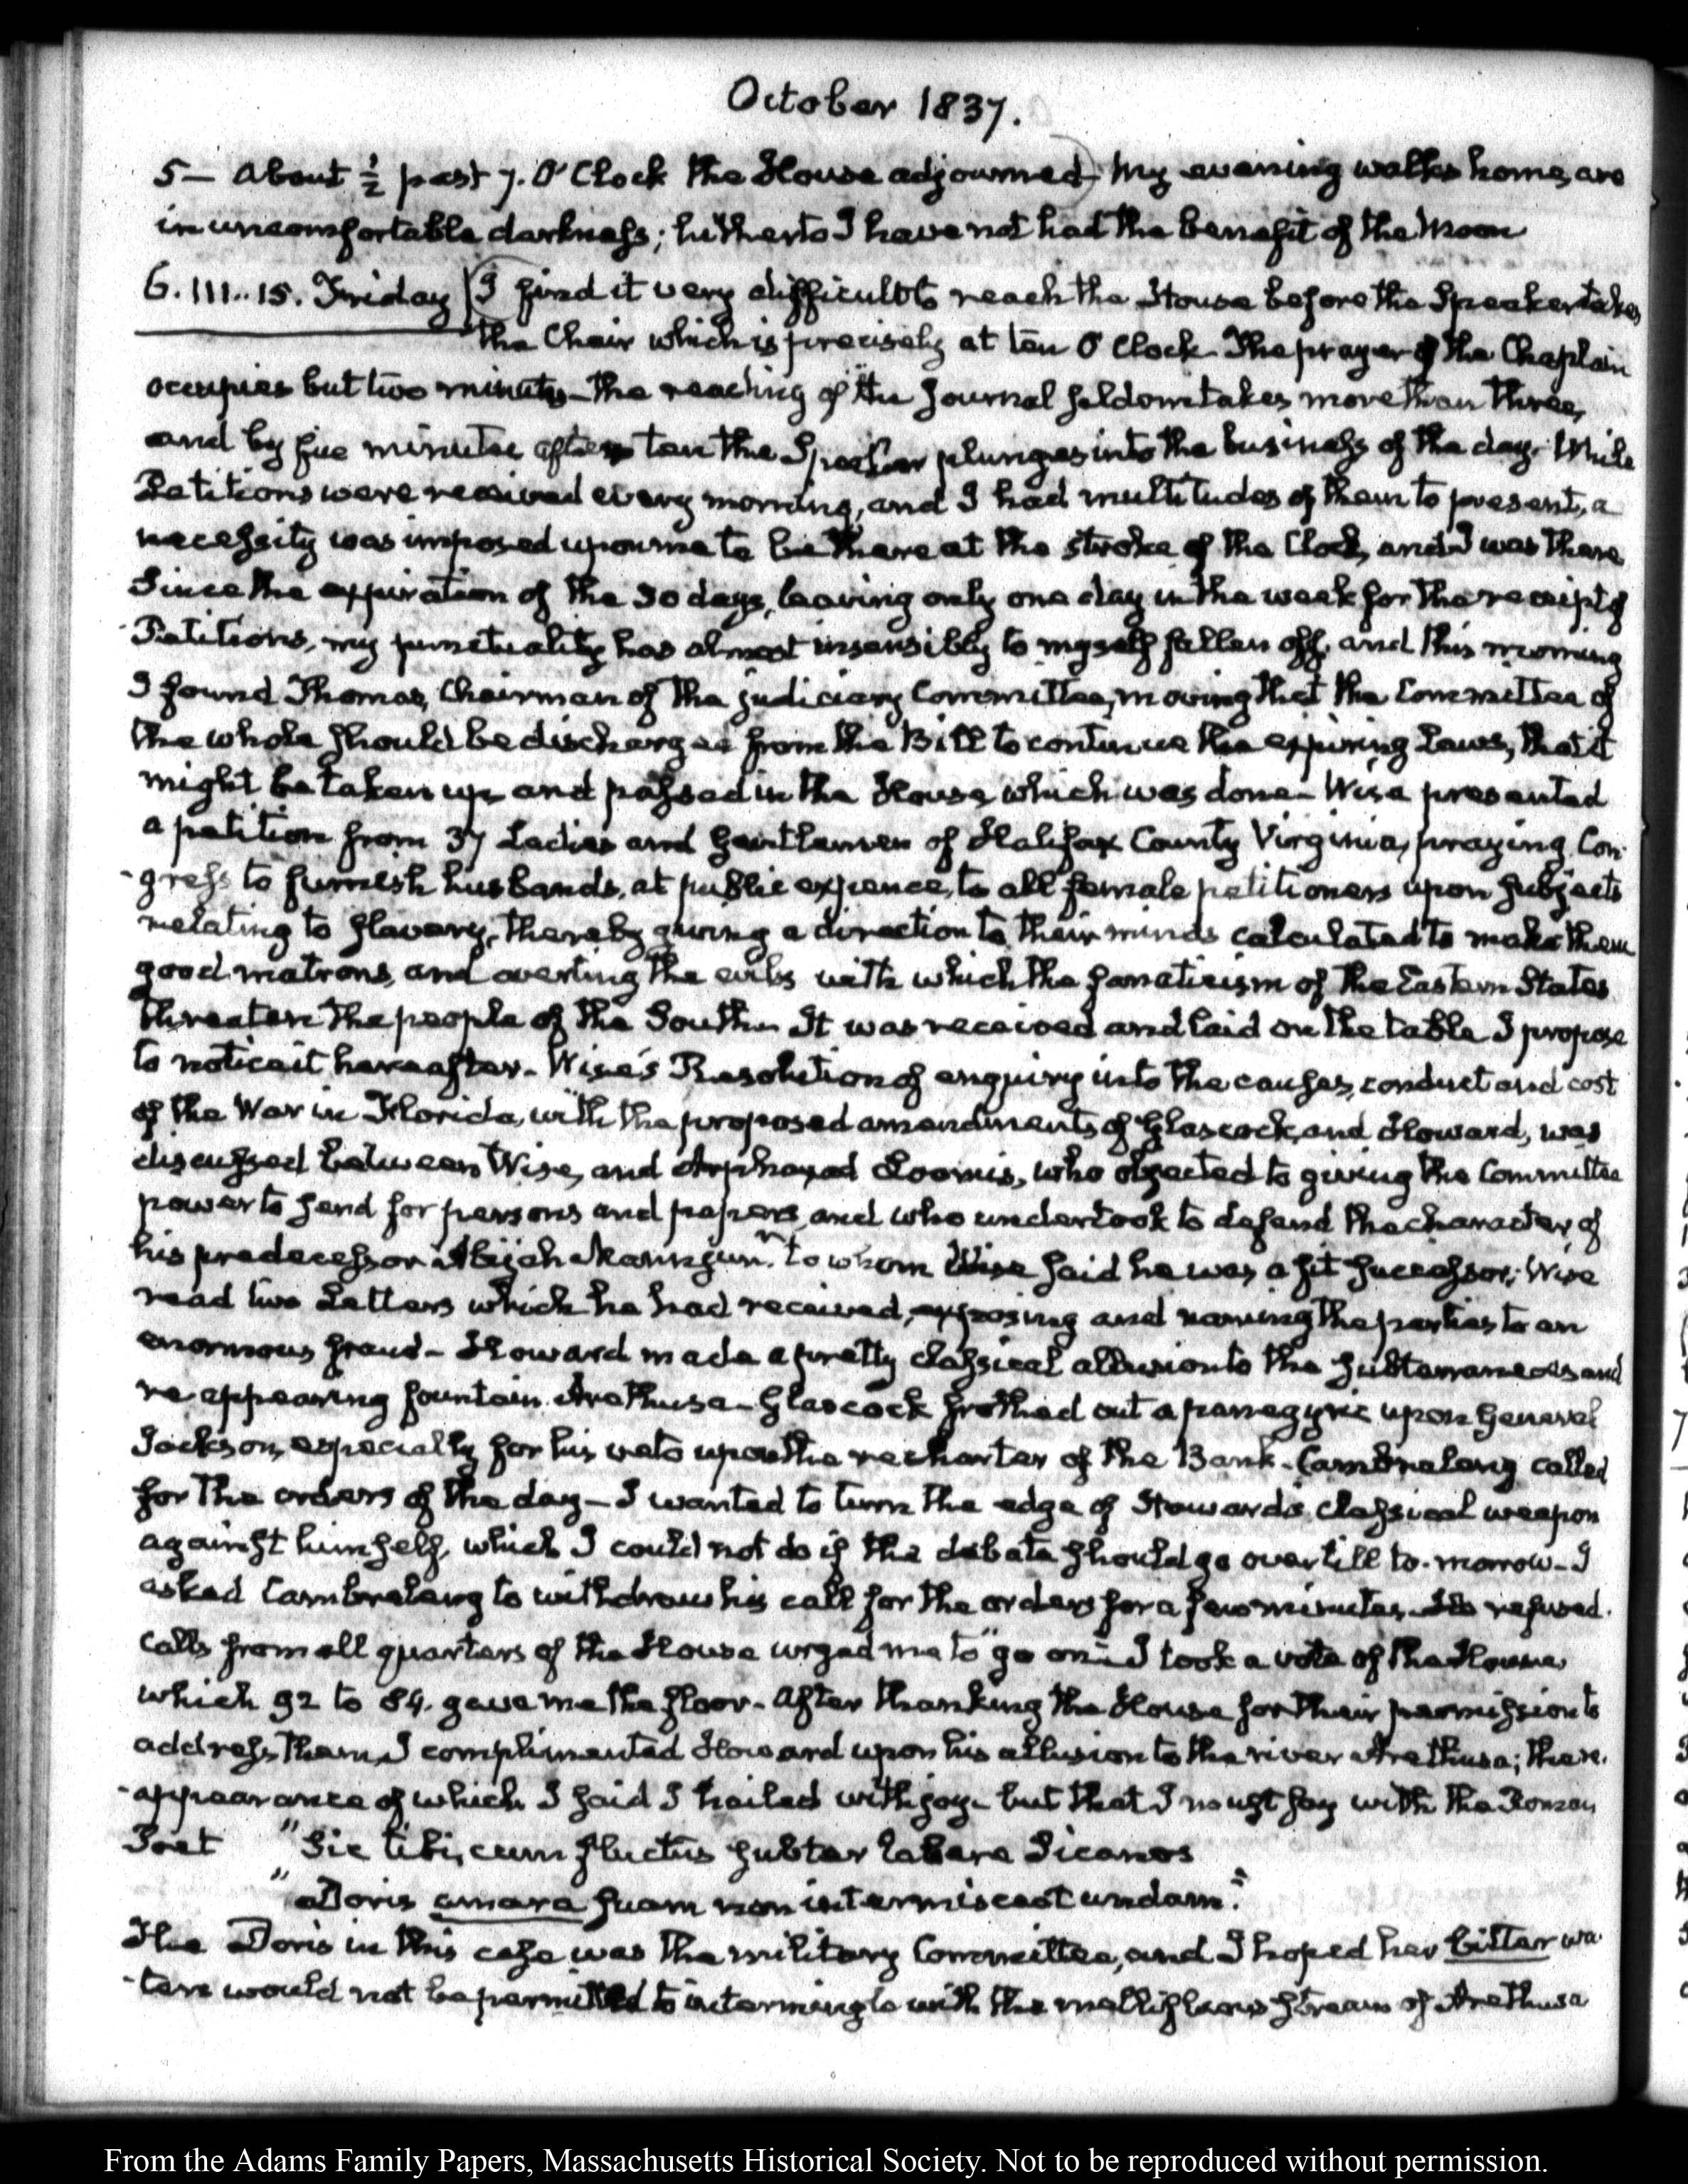 October 1837.
5— About ½ past 7. O'Clock the House adjourned) My evening walks home, are
in uncomfortable darkness; hitherto I have not had the benefit of the Moon
6. III..15. Friday (I find it very difficult to reach the House before the Speaker takes
the Chair which is precisely at ten O'Clock The prayer of the Chaplain
occupies but two minutes— the reading of the Journal seldom takes more than three,
and by five minutes after ten the Speaker plunges into the business of the day. While
Petitions were received every morning, and I had multitudes of them to present, a
necessity was imposed upon me to be there at the stroke of the Clock, and I was there
Since the expiration of the 30 days, leaving only one day in the week for the receipt of
Petitions, my punctuality has almost insensibly to myself fallen off, and this morning
I found Thomas, Chairman of the judiciary Committee, moving that the Committee of
the whole should be discharged from the Bill to continue the expiring Laws, that it
might be taken up and passed in the House, which was done— Wise presented
a petition from 37 Ladies and Gentlemen of Halifax County Virginia, praying Con-
-gress to furnish husbands, at public expence, to all female petitioners upon subjects
relating to slavery, thereby giving a direction to their minds calculated to make them
good matrons, and averting the evils with which the fanaticism of the Eastern States
threaten the people of the South— It was received and laid on the table I propose
to notice it hereafter— Wise's Resolution of enquiry into the causes, conduct and cost
of the War in Florida, with the proposed amendments of Glascock, and Howard, was
discussed between Wise, and Arphaxad Loomis, who objected to giving the Committee
power to send for persons and papers, and who undertook to defend the character of
his predecessor Abijah Mann junr. to whom Wise said he was a fit successor; Wise
read two Letters which he had received, exposing and naming the parties to an
enormous fraud— Howard made a pretty classical allusion to the subterraneous and
re appearing fountain Arethusa— Glascock frothed out a panegyric upon General
Jackson, especially for his veto upon the recharter of the Bank— Cambreleng called
for the orders of the day— I wanted to turn the edge of Howard's classical weapon
against himself, which I could not do if the debate should go over till to-morrow— I
asked Cambreleng to withdraw his call for the orders for a few minutes. He refused.
calls from all quarters of the House urged me to "go on"— I took a vote of the House,
which 92 to 84. gave me the floor— After thanking the House for their permission to
address them, I complimented Howard upon his allusion to the river Arethusa; the re-
-appearance of which I said I hailed with joy— but that I must say with the Roman
Poet "Sic tibi, cum fluctus subter labere Sicanos
"Doris amara suam non intermisceat undam."
The Doris in this case was the military Committee, and I hoped her bitter wa-
-ters would not be permitted to intermingle with the mellifluous stream of Arethusa
From the Adams Family Papers, Massachusetts Historical Society. Not to be reproduced without permission.